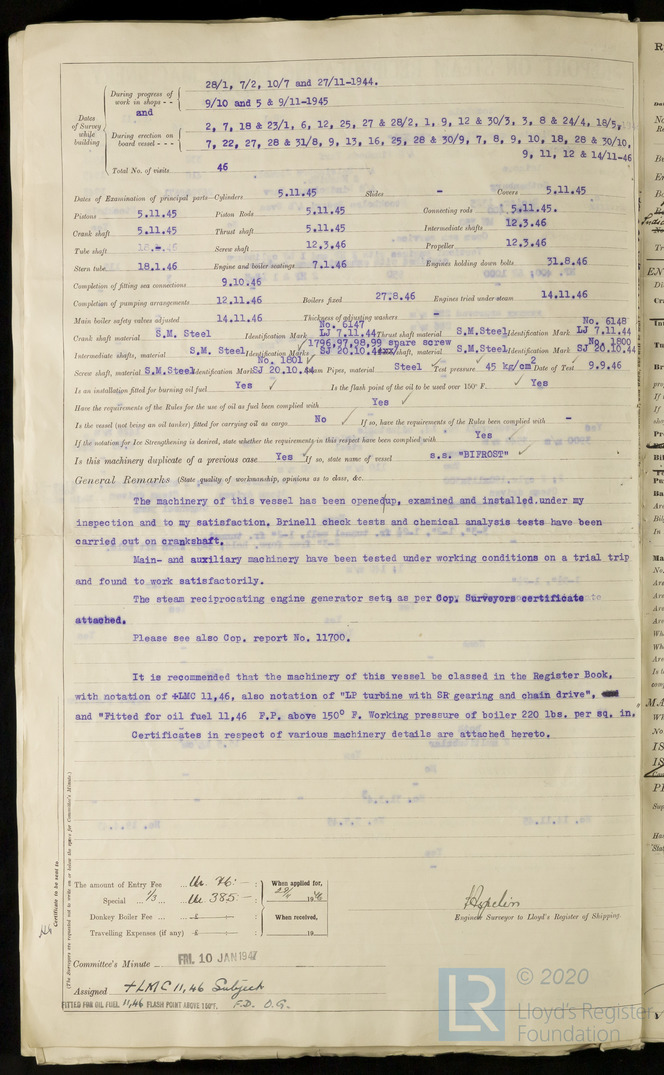 28/1, 7/2, 10/7 and 27/11-1944.
During progress of work in shops - -
9/10 and 5 & 9/11-1945
and
Dates of Survey while building
During erection on board vessel - - -
2, 7, 18 & 23/1, 6, 12, 25, 27 & 28/2, 1, 9, 12 & 30/3, 3, 8 & 24/4, 18/5,
7, 22, 27, 28 & 31/8, 9, 13, 16, 25, 28 & 30/9, 7, 8, 9, 10, 18, 28 & 30/10,
9, 11, 12 & 14/11-46
Total No. of visits 46
Dates of Examination of principal parts—Cylinders 5.11.45 Slides - Covers 5.11.45
Pistons 5.11.45 Piston Rods 5.11.45 Connecting rods 5.11.45.
Crank shaft 5.11.45 Thrust shaft 5.11.45 Intermediate shafts 12.3.46
Tube shaft Screw shaft 12.3.46 Propeller 12.3.46
Stern tube 18.1.46 Engine and boiler seatings 7.1.46 Engines holding down bolts 31.8.46
Completion of fitting sea connections 9.10.46
Completion of pumping arrangements 12.11.46 Boilers fixed 27.8.46 Engines tried under steam 14.11.46
Main boiler safety valves adjusted 14.11.46 Thickness of adjusting washers
Crank shaft material S.M. Steel Identification Mark No. 6147 LJ 7.11.44 Thrust shaft material S.M.Steel Identification Mark No. 6148 LJ 7.11.44
Intermediate shafts, material S.M. Steel Identification Marks 1796,97,98,99 spare screw SJ 20.10.44 shaft, material S.M.Steel Identification Mark No. 1800 SJ 20.10.44
Screw shaft, material S.M.Steel Identification Mark No. 1801 SJ 20.10.44 Steam Pipes, material Steel Test pressure 45 kg/cm2 Date of Test 9.9.46
Is an installation fitted for burning oil fuel Yes Is the flash point of the oil to be used over 150° F. Yes
Have the requirements of the Rules for the use of oil as fuel been complied with Yes
Is the vessel (not being an oil tanker) fitted for carrying oil as cargo No If so, have the requirements of the Rules been complied with -
If the notation for Ice Strengthening is desired, state whether the requirements in this respect have been complied with Yes
Is this machinery duplicate of a previous case Yes If so, state name of vessel s.s. "BIFROST"
General Remarks (State quality of workmanship, opinions as to class, &c.
The machinery of this vessel has been opened up, examined and installed under my
inspection and to my satisfaction, Brinell check tests and chemical analysis tests have been
carried out on crankshaft.
Main- and auxiliary machinery have been tested under working conditions on a trial trip
and found to work satisfactorily.
The steam reciprocating engine generator sets as per Cop. Surveyors certificate
attached.
Please see also Cop. report No. 11700.
It is recommended that the machinery of this vessel be classed in the Register Book,
with notation of +LMC 11,46, also notation of "LP turbine with SR gearing and chain drive",
and "Fitted for oil fuel 11,46 F.P. above 150° F. Working pressure of boiler 220 lbs. per sq. in.
Certificates in respect of various machinery details are attached hereto.
Certificate to be sent to
(The Surveyors are requested not to write on or below the space for Committee's Minute.)
The amount of Entry Fee ... 76: - : When applied for,
Special ... 1/3 ... 385 - : 19
Donkey Boiler Fee ... £ : When received,
Travelling Expenses (if any) £ : 19
Engineer Surveyor to Lloyd's Register of Shipping.
Committee's Minute FRI. 10 JAN 1947
Assigned +LMC 11,46 Subject
FITTED FOR OIL FUEL 11,46 FLASH POINT ABOVE 150°F. F.D. O.G.
LR
© 2020
Lloyd's Register
Foundation